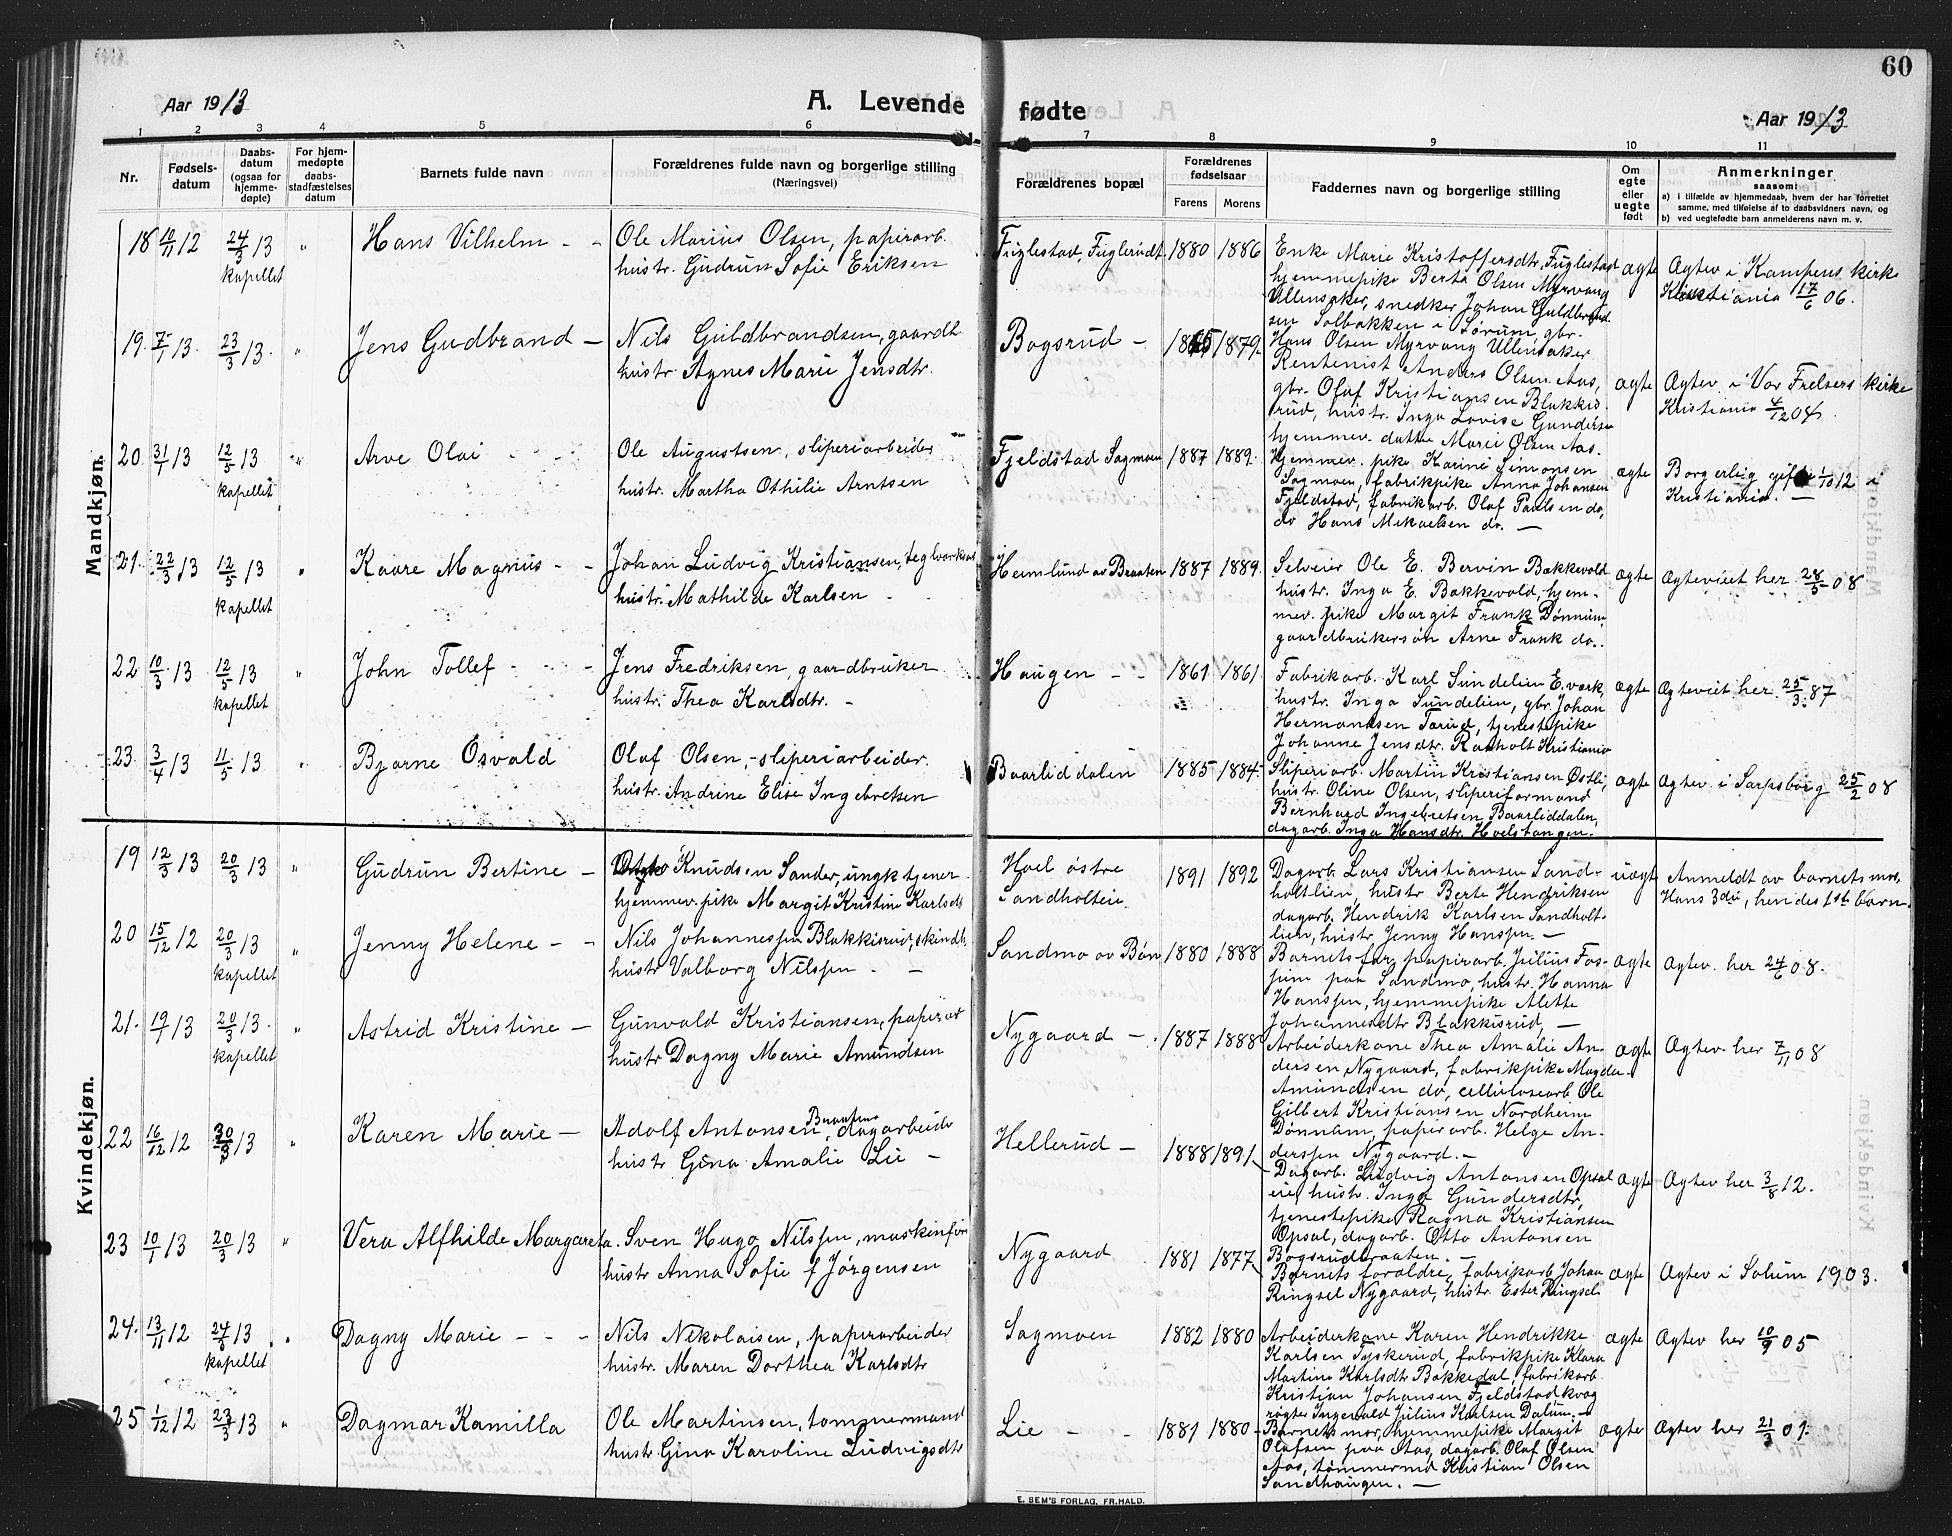 60
Aar 1913
A. Levende fødte
Aar 1913
1 2 3 4 5 6 7 8 9 10 11
Nr.
Fødsels-
datum
Daabs-
datum
(ogsaa for
hjemme-
døpte)
For hjem-
medøpte
daabs-
stadfæstelses
datum
Barnets fulde navn
Forældrenes fulde navn og borgerlige stilling
(Næringsvei)
Forældrenes bopæl
Forældrenes
fødselsaar
Farens Morens
Faddernes navn og borgerlige stilling
Om
egte
eller
uegte
født
Anmerkninger
saasom:
a) i tilfælde av hjemmedaab, hvem der har forrettet
samme, med tilføielse af to daabsvidners navn, og
b) ved uegtefødte barn anmelderens navn m. v.
Mandkjøn.
18 10/11 12 24/3 13 " Hans Vilhelm - - Ole Marius Olsen, papirarb. Fuglestad, Fuglerudt 1880 1886 ægte
kapellet hustr. Gudrun Sofie Eriksen
Enke Marie Kristoffersdtr, Fuglestad
hjemmepike Berta Olsen Myrvang
Ullensaker, snedker Johan Guldbrand-
sen Solbakken i Sørum, gbr.
Hans Olsen Myrvang Ullensaker
Ægtev i Kampens kirke
Kristiania 17/6 06.
19. 7/1 13. 23/3 13. " Jens Gudbrand - Nils Guldbrandsen, gaardb. Bogsrud - 1865 1879. ægte
hustr. Agnes Marie Jensdtr.
Rentenist Anders Olsen Aas,
gbr. Olaf Kristiansen Blakkis-
rud, hustr. Inga Lovise Gunders
hjemmev. datter Marie Olsen Aas.
Ægtev. i Vor Frelsers kirke
Kristiania 4/12 04.
20. 31/1 13 12/5 13 " Arve Olai - - - Ole Augustsen, sliperiarbeider Fjeldstad Sagmoen 1887 1889. ægte
kapellet hustr. Martha Othilie Arntsen
Hjemmev. pike Karine Simonsen
Sagmoen, fabrikpike Anna Johansen
Fjeldstad, fabrikarb. Olaf Paulsen do,
do Hans Mikaelsen do. -
Borgerlig gift 1/10 12 i
Kristiania. -
21. 22/3 13 12/5 13 " Kaare Magnus - - Johan Ludvig Kristiansen, teglverksarb Heimlund av Braaten 1887 1889. ægte
kapellet hustr. Mathilde Karlsen - -
Selveier Ole E. Bervin Bakkevold
hustr. Inga E. Bakkevold, hjem-
mev. pike Margit Frank Dønnum,
gaardbrukersøn Arne Frank do..
Ægteviet her 28/5 08
22 10/3 13 12/5 13 " John Tollef - - - Jens Fredriksen, gaardbruker Haugen - - 1861 1861 ægte
kapellet hustr. Thea Karlsdtr. -
Fabrikarb. Karl Sundelien E.verk,
hustr. Inga Sundelien, gbr. Johan
Hermansen Tarud, tjenestepike
Johanne Jensdtr. Raaholt Kristiania
Ægteviet her 25/3 87
23. 3/4 13 11/5 13 " Bjarne Osvald Olaf Olsen, - sliperiarbeider. Baarliddalen 1885 1884. ægte
hustr. Andrine Elise Ingebretsen
Sliperiarb. Martin Kristiansen Østli,
hustr. Oline Olsen, sliperiformand
Bernhard Ingebretsen, Baarliddalen,
dagarb. Inga Hansdtr. Hoelstangen.
Ægtev. i Sarpsborg 25/2 08
Kvindekjøn.
19 12/3 13 20/3 13 " Gudrun Bertine - Knudsen Sander, ungk tjener Hoel østre 1891 1892 uægte
hjemmev. pike Margit Kristine Karlsdtr Sandholteie.
Dagarb. Lars Kristiansen Sand-
holtlien, hustr Berte Hendriksen
dagarb. Hendrik Karlsen Sandholt-
lien, hustr Jenny Hanssen. -
Anmeldt av barnets mor,
Hans 3die, hendes 1ste barn.
20 15/12 12 20/3 13 " Jenny Helene - - Nils Johannessen Blakkisrud, skindh. Sandmo av Bøn 1880 1888 ægte
kapellet hustr Valborg Nilssen - -
Barnets far, papirarb. Julius Fos-
sum paa Sandmo, hustr. Hanna
Hanssen, hjemmepike Alette
Johannesdtr Blakkisrud, -
Ægtev. her 24/6 08.
21. 19/1 13 20/3 13. " Astrid Kristine - Gunvald Kristiansen, papirar Nygaard - . 1887 1888 ægte
kapellet hustr Dagny Marie Amundsen
Arbeiderkone Thea Amalie An-
dersen Nygaard, fabrikpike Magda
Amundsen do, cellulosearb Ole
Gilbert Kristiansen Nordheim
Dønnum, papirarb. Helge An-
derssen Nygaard. -
Ægtev. her 7/11 08
22 16/12 12 30/3 13 " Karen Marie - Adolf Antonsen Braaten, dagarbeide Hellerud - 1888 1891 ægte
hustr Gina Amalie Lie -
Dagarb. Ludvig Antonsen Opsal
eie, hustr. Inga Gundersdtr,
tjenestepike Ragna Kristiansen
Opsal, dagarb. Otto Antonsen
Bogsrudbraaten. -
Ægtev her 3/8 12.
23 10/1 13 20/3 13 " Vera Alfhilde Margareta. Sven Hugo Nilssen, maskinfør Nygaard 1881 1877 ægte
hustr Anna Sofie f Jørgensen
Barnets forældre, fabrikarb Johan
Ringsel Nygaard, hustr. Ester Ringsel
Ægtev i Solum 1903.
24. 13/11 12 24/3 13 " Dagny Marie - - - Nils Nikolaisen, papirarbeider Sagmoen 1882 1880 ægte
kapellet hustr. Maren Dorthea Karlsdtr
Arbeiderkone Karen Hendrikke
Karlsen Tyskerud, fabrikpike Klara
Martine Karlsdtr Bakkedal, fabrikarb.
Kristian Johansen Fjeldstad kvæg
røgter Ingevald Julius Karlsen Dalum. -
Ægtev her 10/9 05
25 1/12 12 23/3 13 " Dagmar Kamilla Ole Martinsen, tømmermand Lie - - 1881 1880 ægte
hustr. Gina Karoline Ludvigsdtr
Barnets mor, hjemmepike Margit
Olafsen paa Aas, dagarb. Olaf Olsen
Aas, tømmermd Kristian Olsen
Sandhaugen. -
Ægtev her 21/3 07.
E. SEM'S FORLAG, FR.HALD.